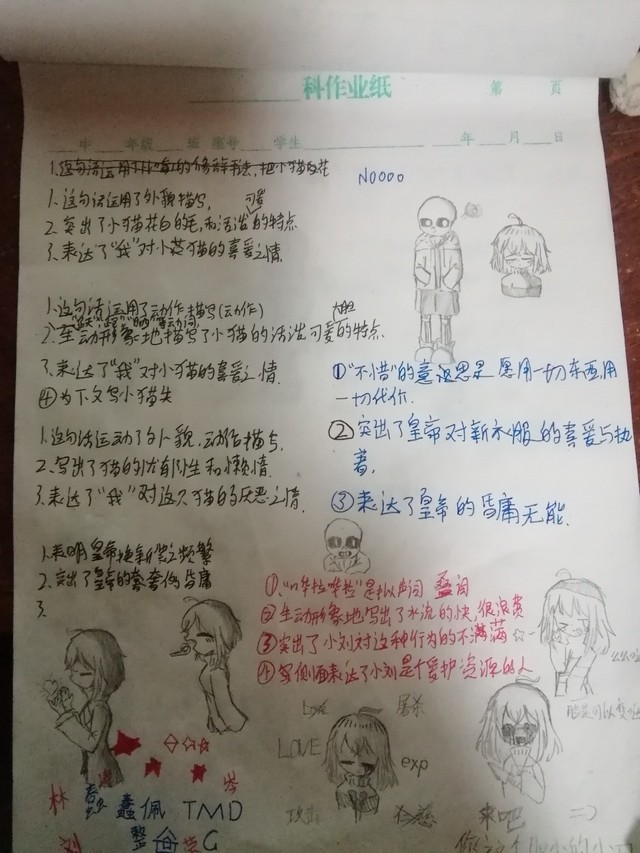 科作业纸 第 页
中 年级 班 座号 学生 年 月 日
NOOOO
1.这句话运用了外貌描写,
可爱
2.突出了小猫花白的毛,和活泼的特点
3.表达了“我”对小英猫的喜爱之情.
1.这句话运用了动作描写(动作)
大胆
2.生动形象地描写了小猫的活泼可爱的特点.
3.表达了“我”对小猫的喜爱之情.
④为下文写小猫失
1.这句话运动了外貌,动作描写.
2.写出了猫的忧郁性和懒惰.
3.表达了“我”对这只猫的厌恶之情.
1.表明皇帝换新装之频繁
2.突出了皇帝的昏庸
3.
①“不惜”的意思是 愿用一切东西,用
一切代价.
②突出了皇帝对新衣服的喜爱与执
着.
③表达了皇帝的昏庸无能.
①“哗啦哗啦”是拟声词 叠词
②生动形象地写出了水流的快,很浪费
③突出了小刘对这种行为的不满
④侧面表达了小刘是个爱护资源的人
Love 屠杀
LOVE exp
攻击
来吧 =)
林 蠢佩 TMD
刘 整 G